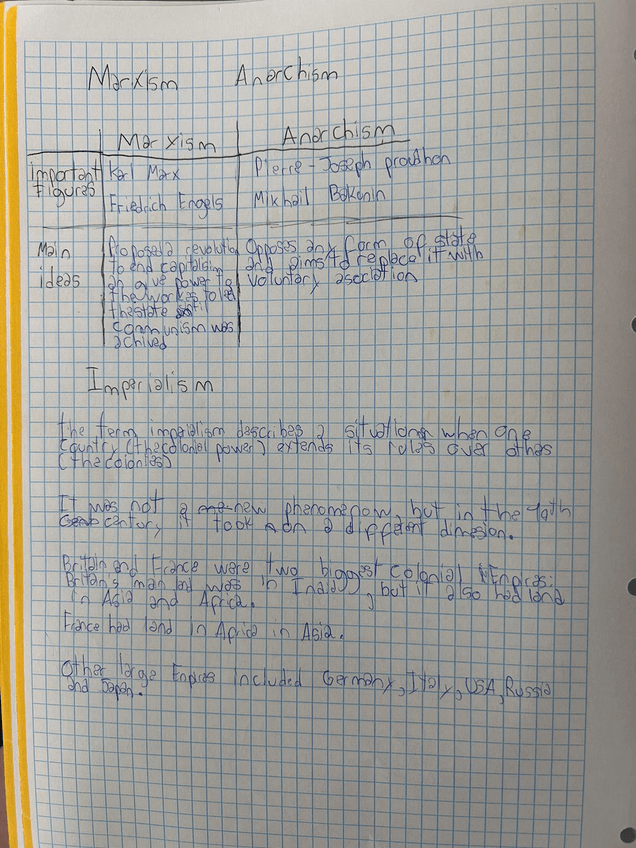 Marxism Anarchism
Marxism Anarchism
Important Figures
Karl Marx
Friedrich Engels
Pierre-Joseph proudhon
Mikhail Bakunin
Main
ideas
Proposed a revolution
to end capitalism
an give power to
the workes to let
the state until
communism was
achived
Opposes any form of state
and aims to replace it with
voluntary asociation
Imperialism
the term imperialism describes a situation when one
country (the colonial power) extends its rules over othes
(the colonies)
It was not a new phenomenow, but in the 19th
centur, it took on a different dimesion.
Britain and France were two biggest colonial Empires:
Britain's man land was in India, but it also had land
in Asia and Africa.
France had land in Africa in Asia.
Other large Empires included Germany, Italy, USA, Russia
and Japan.